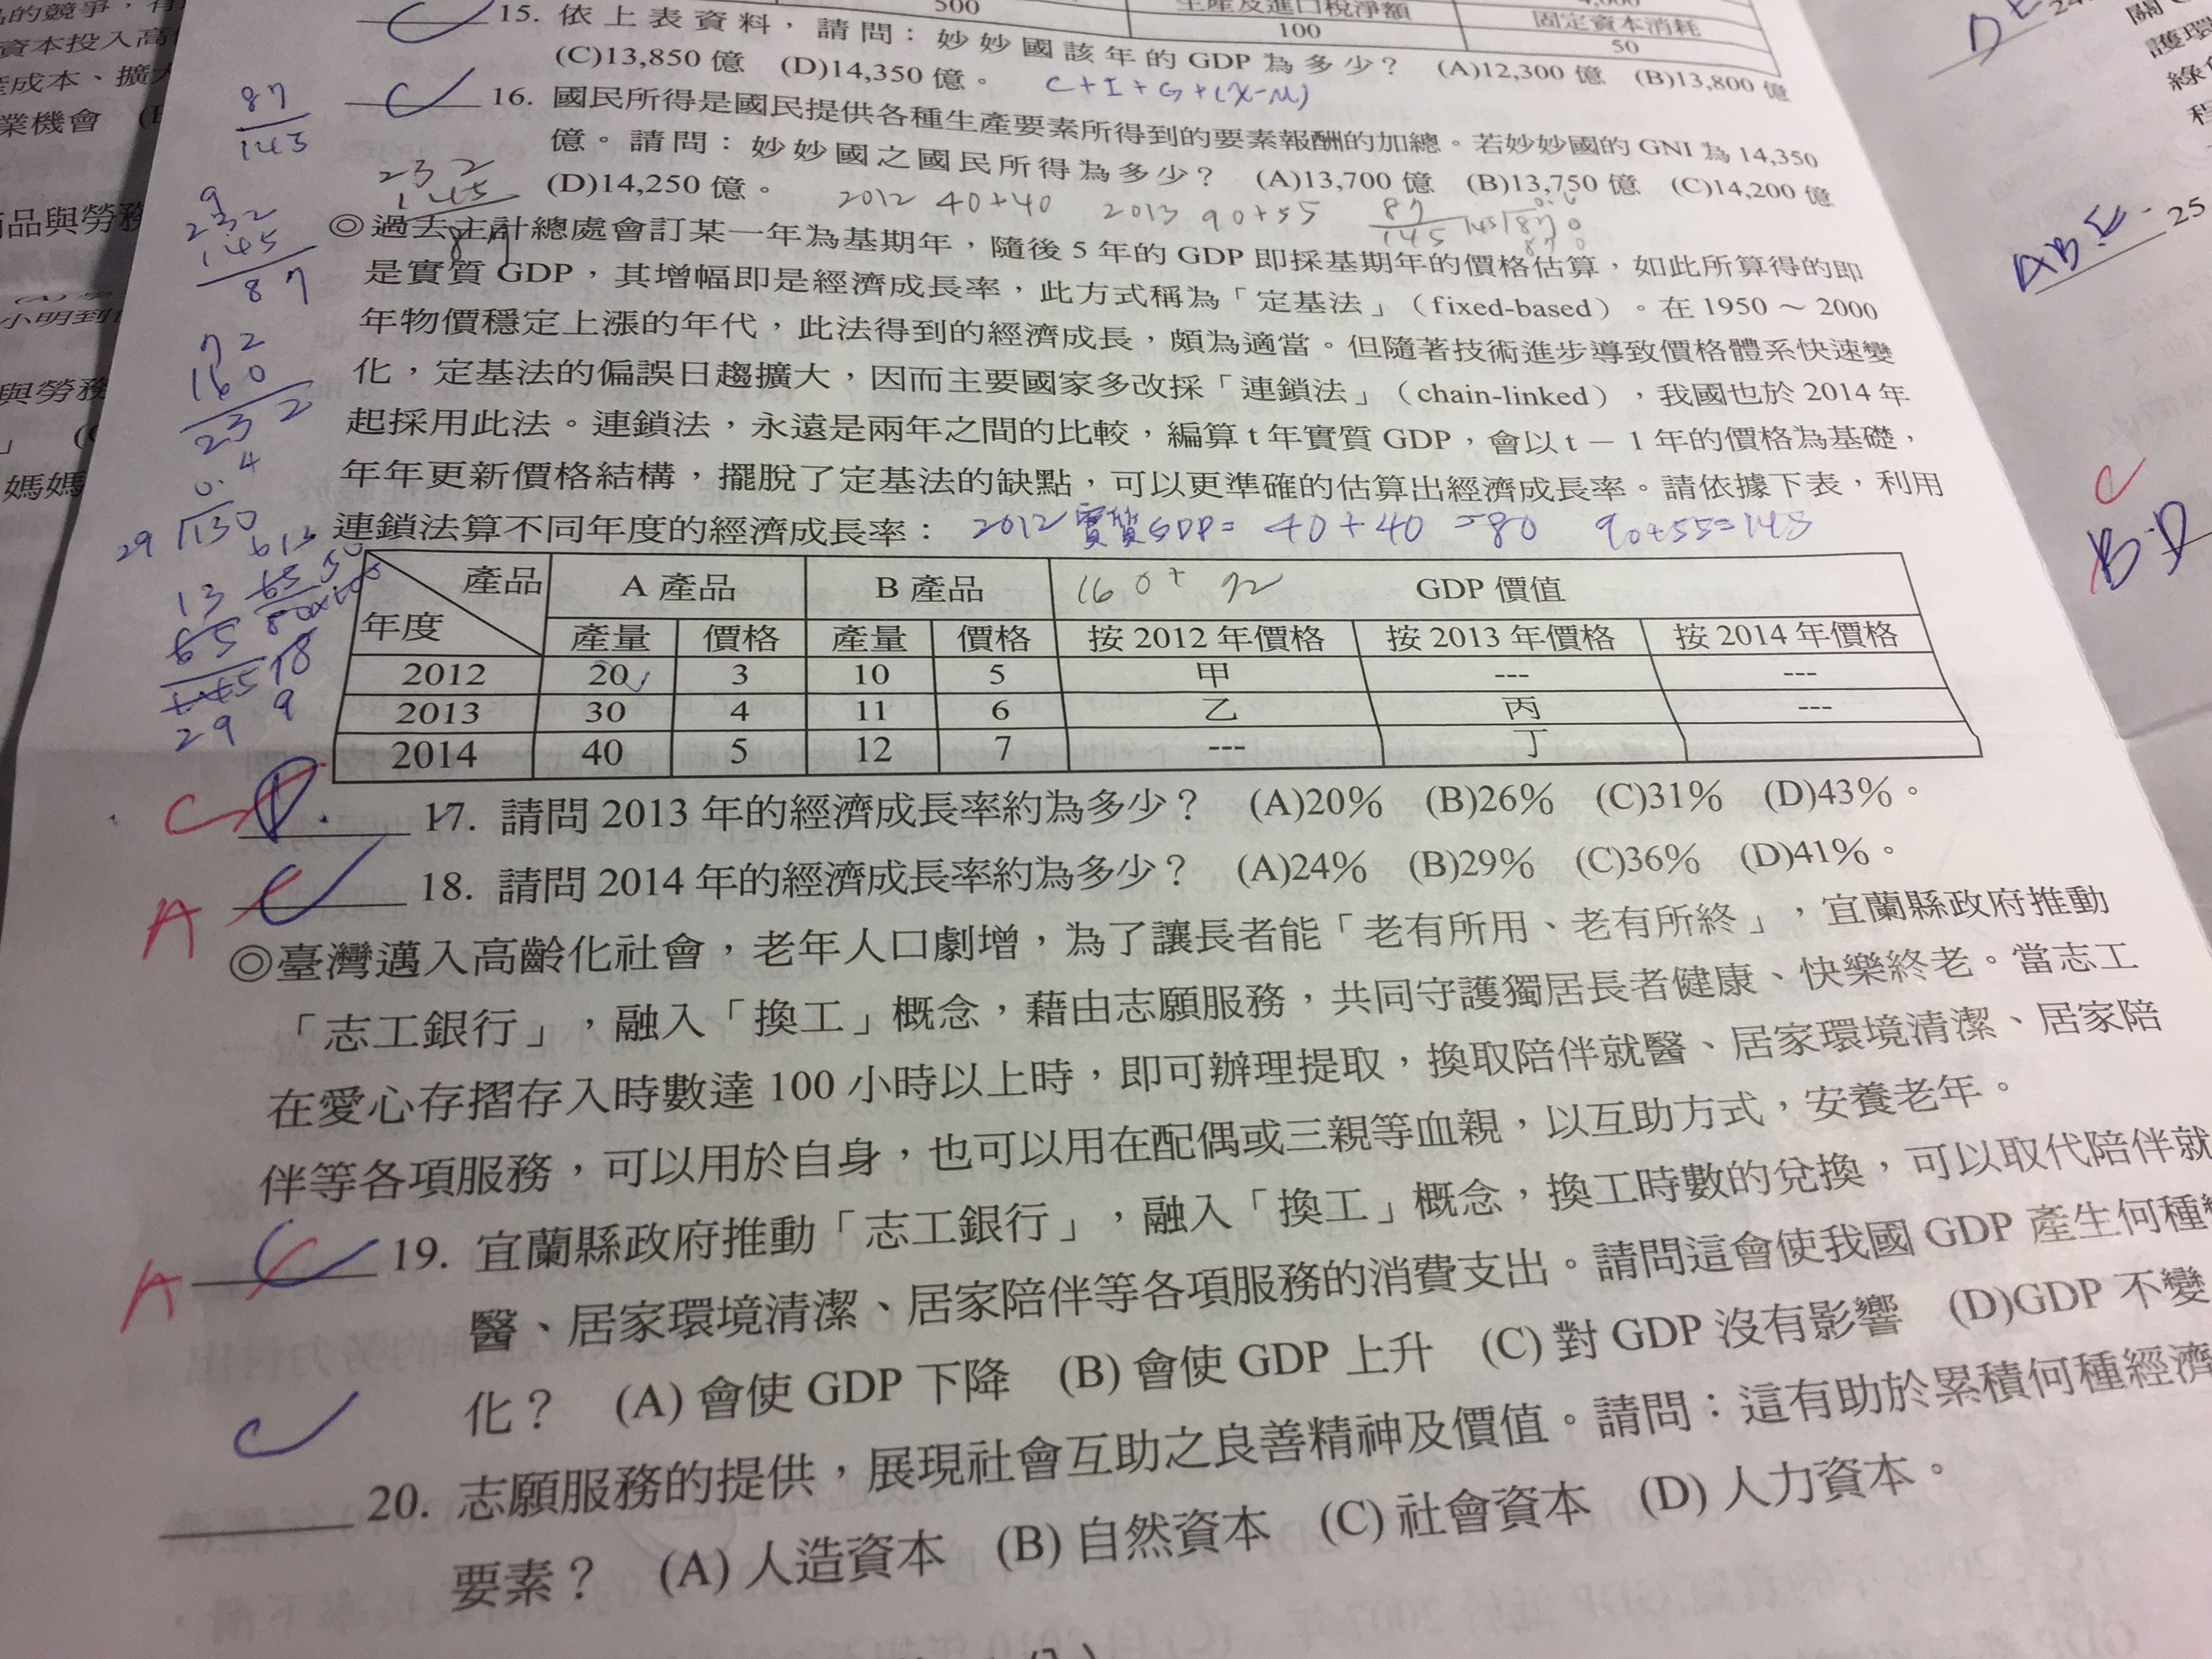 500
生產及進口稅淨額
100
固定資本消耗
50
C
15. 依上表資料，請問：妙妙國該年的 GDP 為多少？ (A)12,300 億 (B)13,800 億
(C)13,850 億 (D)14,350 億。
C+I+G+(X-M)
C
16. 國民所得是國民提供各種生產要素所得到的要素報酬的加總。若妙妙國的 GNI 為 14,350
億。請問：妙妙國之國民所得為多少？ (A)13,700 億 (B)13,750 億 (C)14,200 億
(D)14,250 億。
2012 40+40 2013 90+55
87
145
◎過去主計總處會訂某一年為基期年，隨後 5 年的 GDP 即採基期年的價格估算，如此所算得的即
是實質 GDP，其增幅即是經濟成長率，此方式稱為「定基法」（fixed-based）。在 1950 ～ 2000
年物價穩定上漲的年代，此法得到的經濟成長，頗為適當。但隨著技術進步導致價格體系快速變
化，定基法的偏誤日趨擴大，因而主要國家多改採「連鎖法」（chain-linked），我國也於 2014 年
起採用此法。連鎖法，永遠是兩年之間的比較，編算 t 年實質 GDP，會以 t － 1 年的價格為基礎，
年年更新價格結構，擺脫了定基法的缺點，可以更準確的估算出經濟成長率。請依據下表，利用
連鎖法算不同年度的經濟成長率：
2012 實質GDP= 40+40 =80 90+55=145
87
143
232
145
232
145
87
72
160
232
0.4
29
130
產品
年度
A 產品 B 產品 160+72 GDP 價值
產量 價格 產量 價格 按 2012 年價格 按 2013 年價格 按 2014 年價格
2012 20 3 10 5 甲 --- ---
2013 30 4 11 6 乙 丙 ---
2014 40 5 12 7 --- 丁
C D.
17. 請問 2013 年的經濟成長率約為多少？ (A)20% (B)26% (C)31% (D)43%。
A C
18. 請問 2014 年的經濟成長率約為多少？ (A)24% (B)29% (C)36% (D)41%。
◎臺灣邁入高齡化社會，老年人口劇增，為了讓長者能「老有所用、老有所終」，宜蘭縣政府推動
「志工銀行」，融入「換工」概念，藉由志願服務，共同守護獨居長者健康、快樂終老。當志工
在愛心存摺存入時數達 100 小時以上時，即可辦理提取，換取陪伴就醫、居家環境清潔、居家陪
伴等各項服務，可以用於自身，也可以用在配偶或三親等血親，以互助方式，安養老年。
A C
19. 宜蘭縣政府推動「志工銀行」，融入「換工」概念，換工時數的兌換，可以取代陪伴就
醫、居家環境清潔、居家陪伴等各項服務的消費支出。請問這會使我國 GDP 產生何種
化？ (A) 會使 GDP 下降 (B) 會使 GDP 上升 (C) 對 GDP 沒有影響 (D)GDP 不變
C
20. 志願服務的提供，展現社會互助之良善精神及價值。請問：這有助於累積何種經濟
要素？ (A) 人造資本 (B) 自然資本 (C) 社會資本 (D) 人力資本。
業機會
媽媽
DE
ABE
25
C
BD